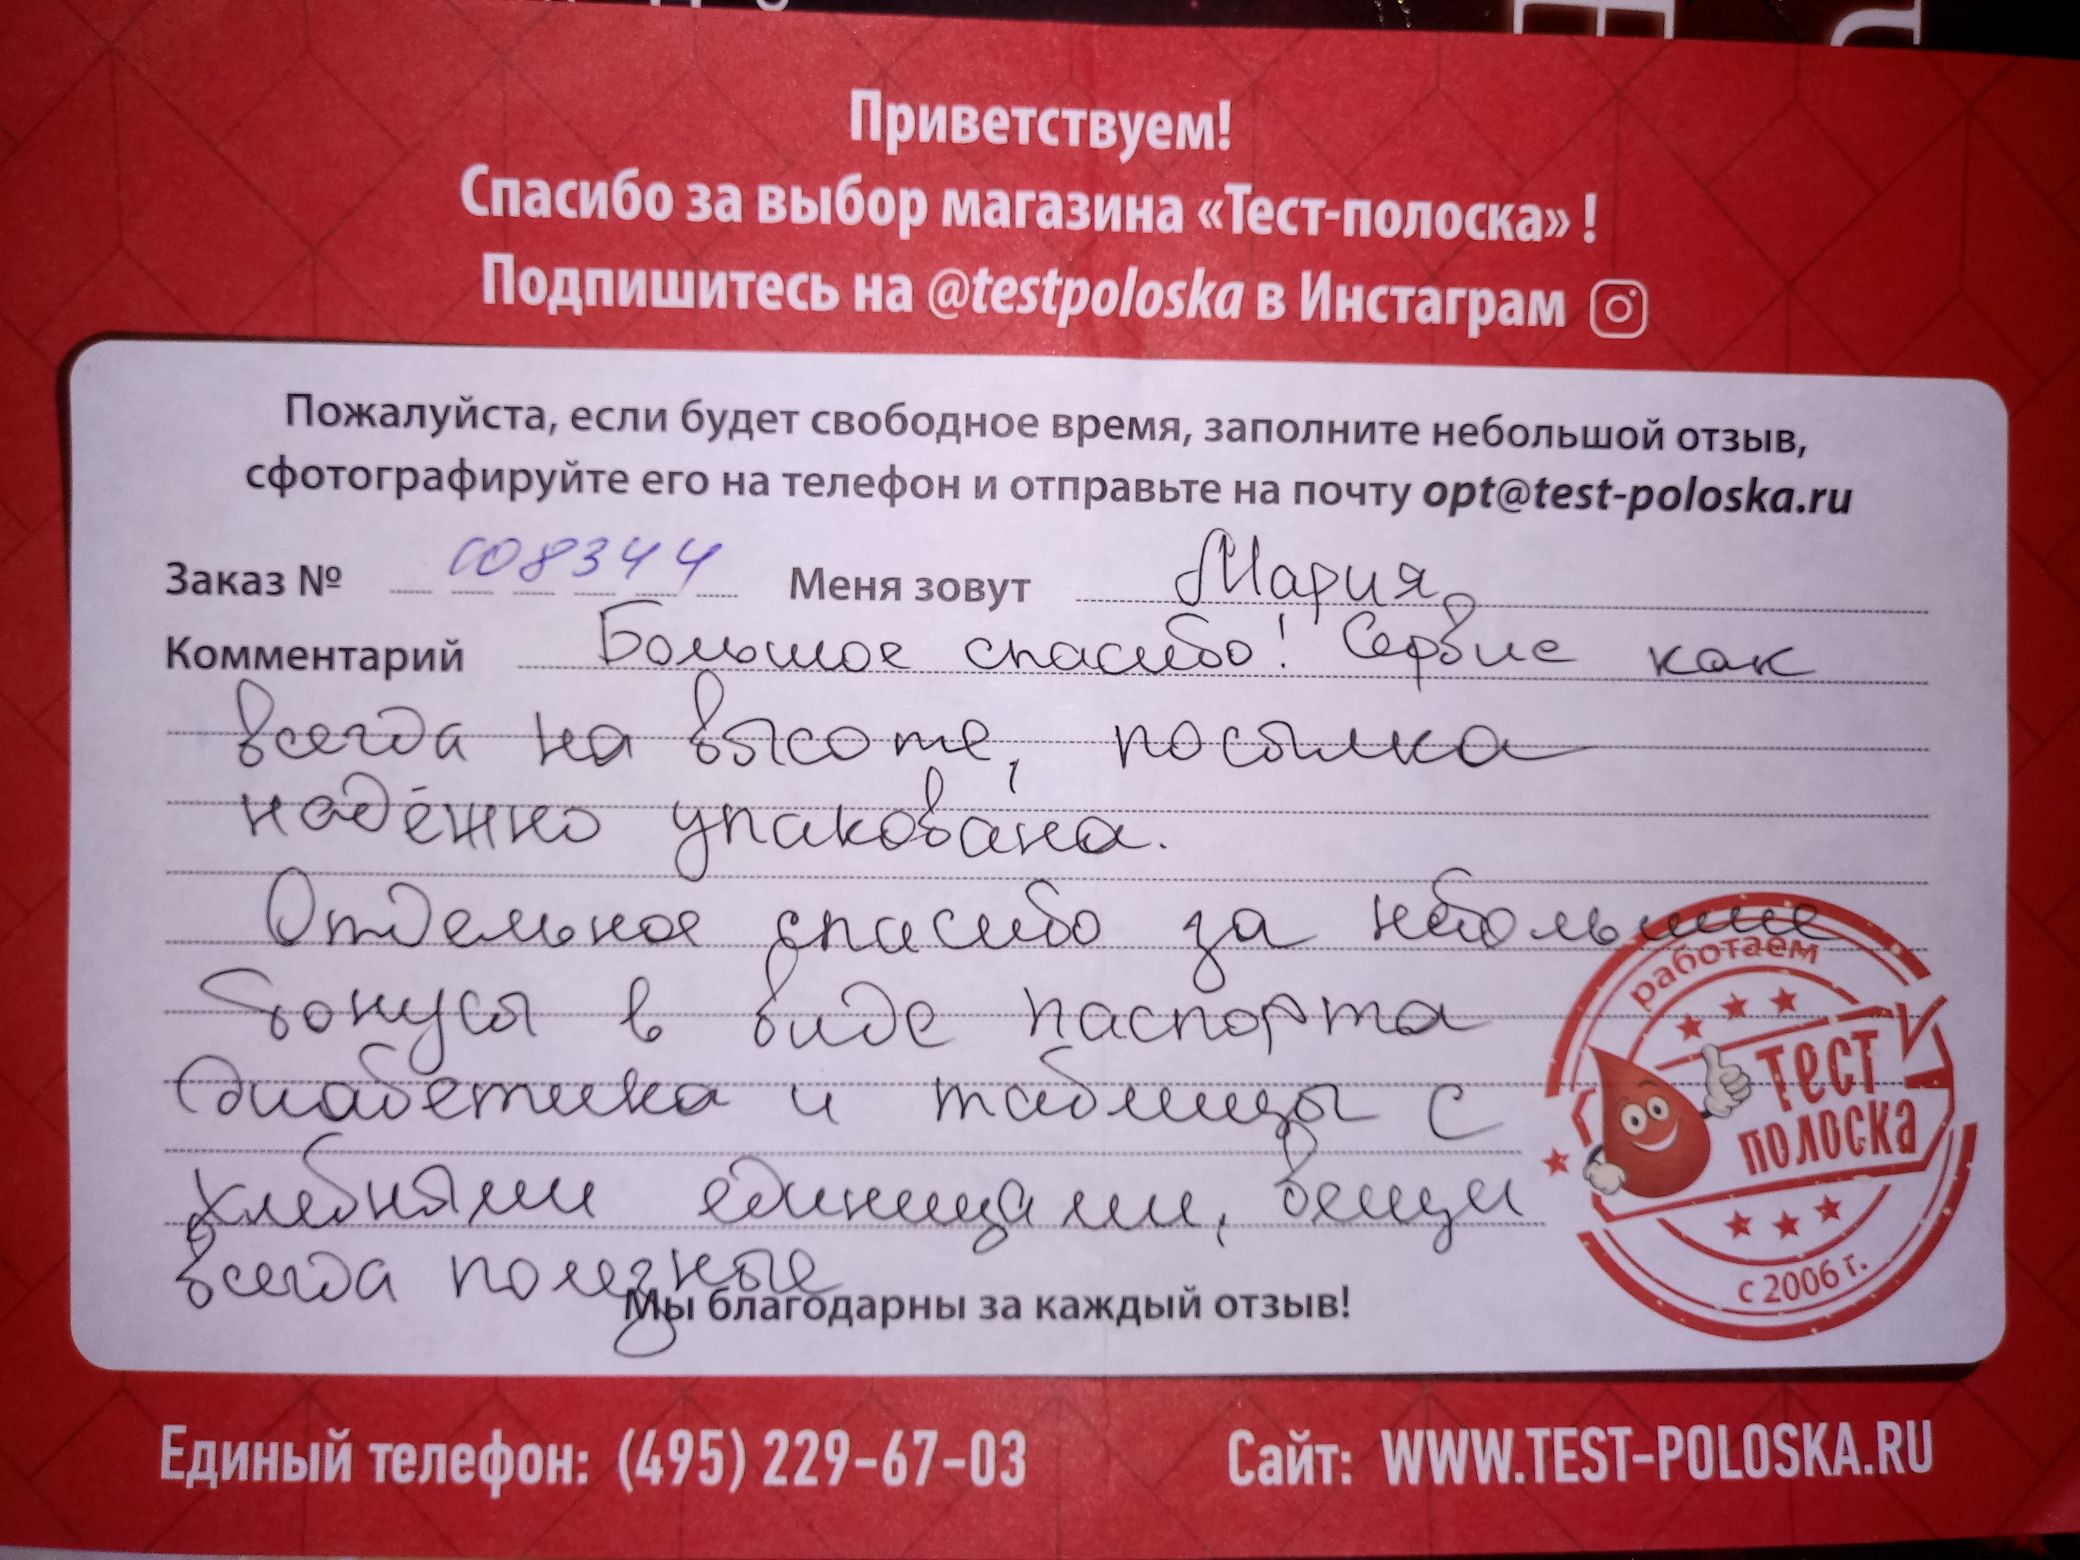 Приветствуем!
Спасибо за выбор магазина «Тест-полоска» !
Подпишитесь на @testpoloska в Инстаграм
Пожалуйста, если будет свободное время, заполните небольшой отзыв,
сфотографируйте его на телефон и отправьте на почту opt@test-poloska.ru
Заказ № 108344 Меня зовут Мария
Комментарий Большое спасибо! Сервис как
всегда на высоте, посылка
надёжно упакована.
Отдельное спасибо за небольшие
бонусы в виде паспорта
диабетика и таблицы с
хлебнями единицами, вещи
всегда полезные
работаем
ТЕСТ
ПОЛОСКА
с 2006 г.
Мы благодарны за каждый отзыв!
Единый телефон: (495) 229-67-03 Сайт: WWW.TEST-POLOSKA.RU